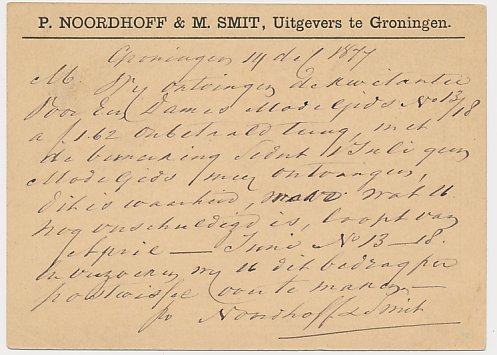 P. NOORDHOFF & M. SMIT, Uitgevers te Groningen.
Groningen 14 de / 1877
M. Wy ontvingen de kwitantie
voor Een Dames ModeGids No 13/18
a f 1.62 onbetaald terug, met
de bemerking sedert 1 Juli geen
ModeGids meer ontvangen,
dit is waarheid, maar wat U
nog verschuldigd is, loopt van
April — Juni No 13 — 18.
verzoeken wy U dit bedrag per
postwissel over te maken
po Noordhoff & Smit